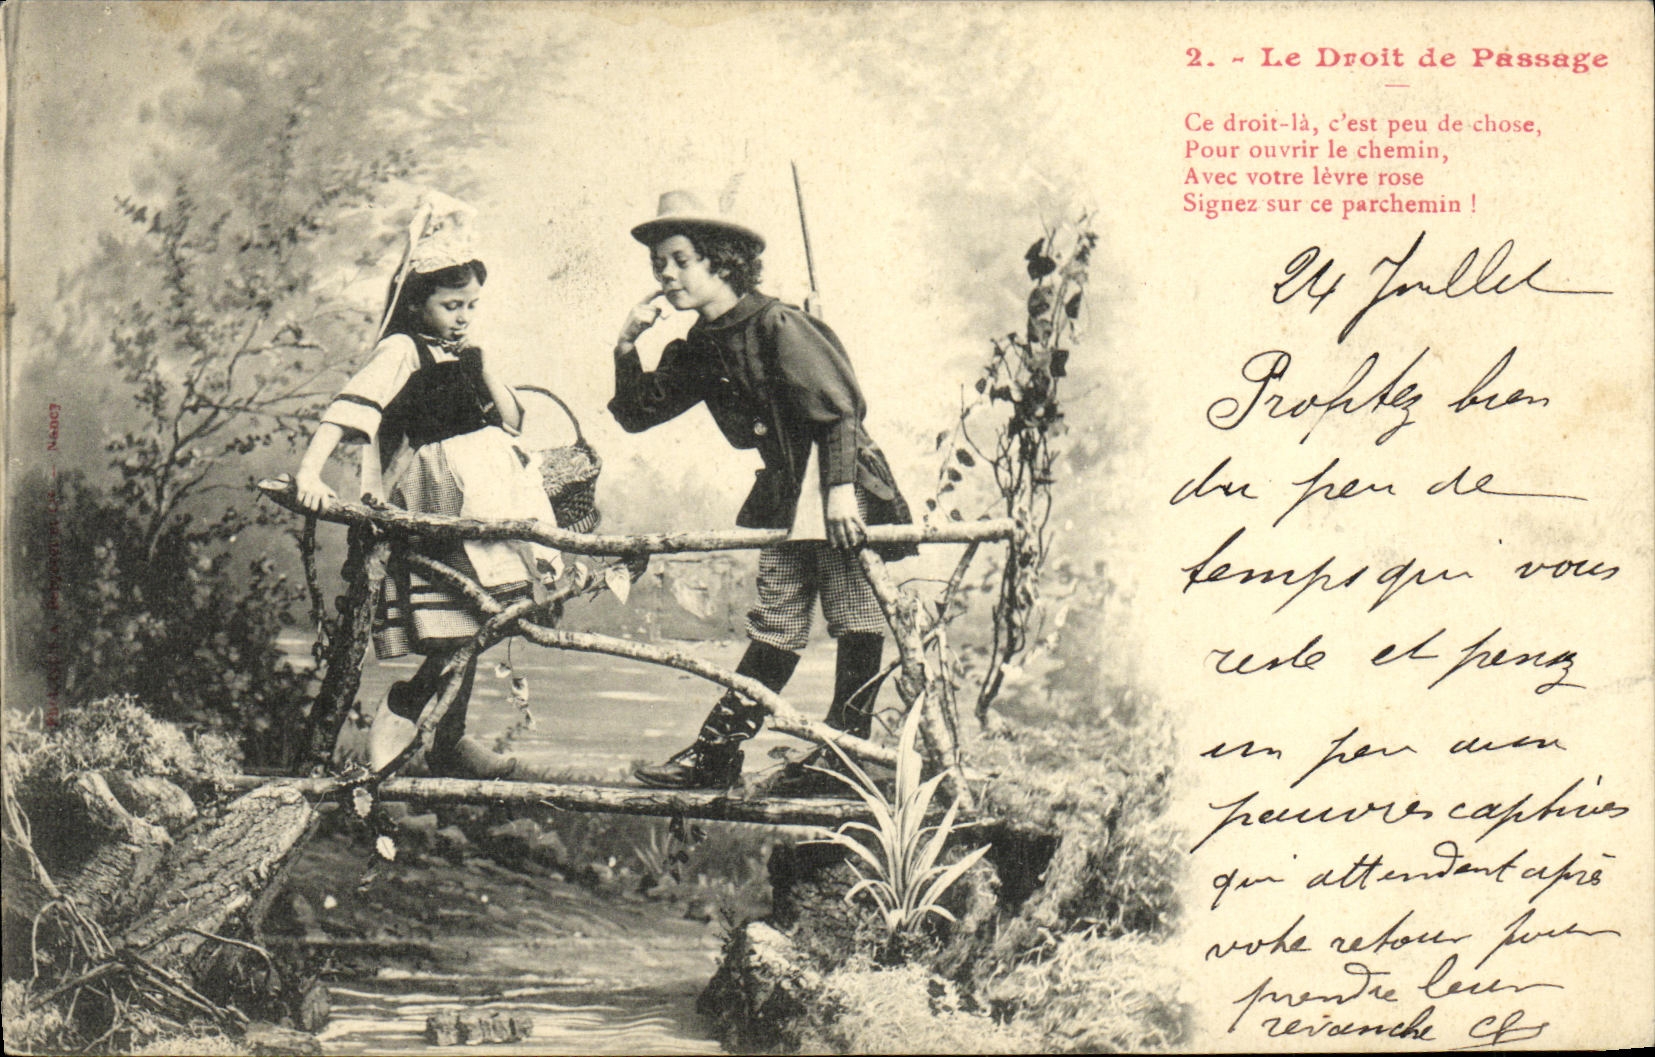 2. - Le Droit de Passage
Ce droit-là, c'est peu de chose,
Pour ouvrir le chemin,
Avec votre lèvre rose
Signez sur ce parchemin !
24 Juillet
Profitez bien
du peu de
temps qui vous
reste et pensez
un peu aux
pauvres captives
qui attendent après
votre retour pour
prendre leur
revanche
Nancy